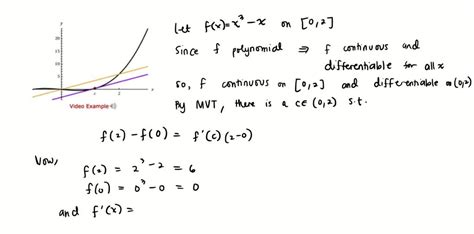 Let f(x) = x³ - x on [0,2]
Since f polynomial ⇒ f continuous and
differentiable for all x
So, f continuous on [0,2] and differentiable on (0,2)
By MVT, there is a c∈(0,2) s.t.
Video Example
f(2) - f(0) = f'(c)(2-0)
Now,
f(2) = 2³ - 2 = 6
f(0) = 0³ - 0 = 0
and f'(x) =